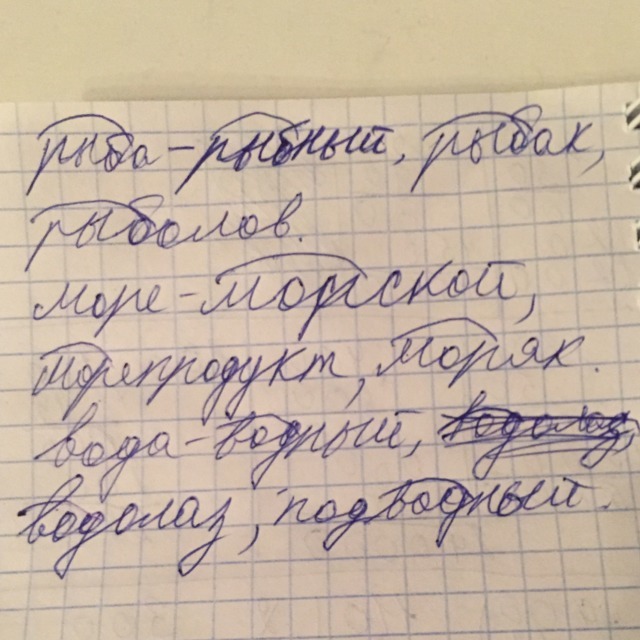 рыба - рыбный, рыбак,
рыболов.
море - морской,
морепродукт, моряк.
вода - водный, водолаз,
водолаз, подводный.